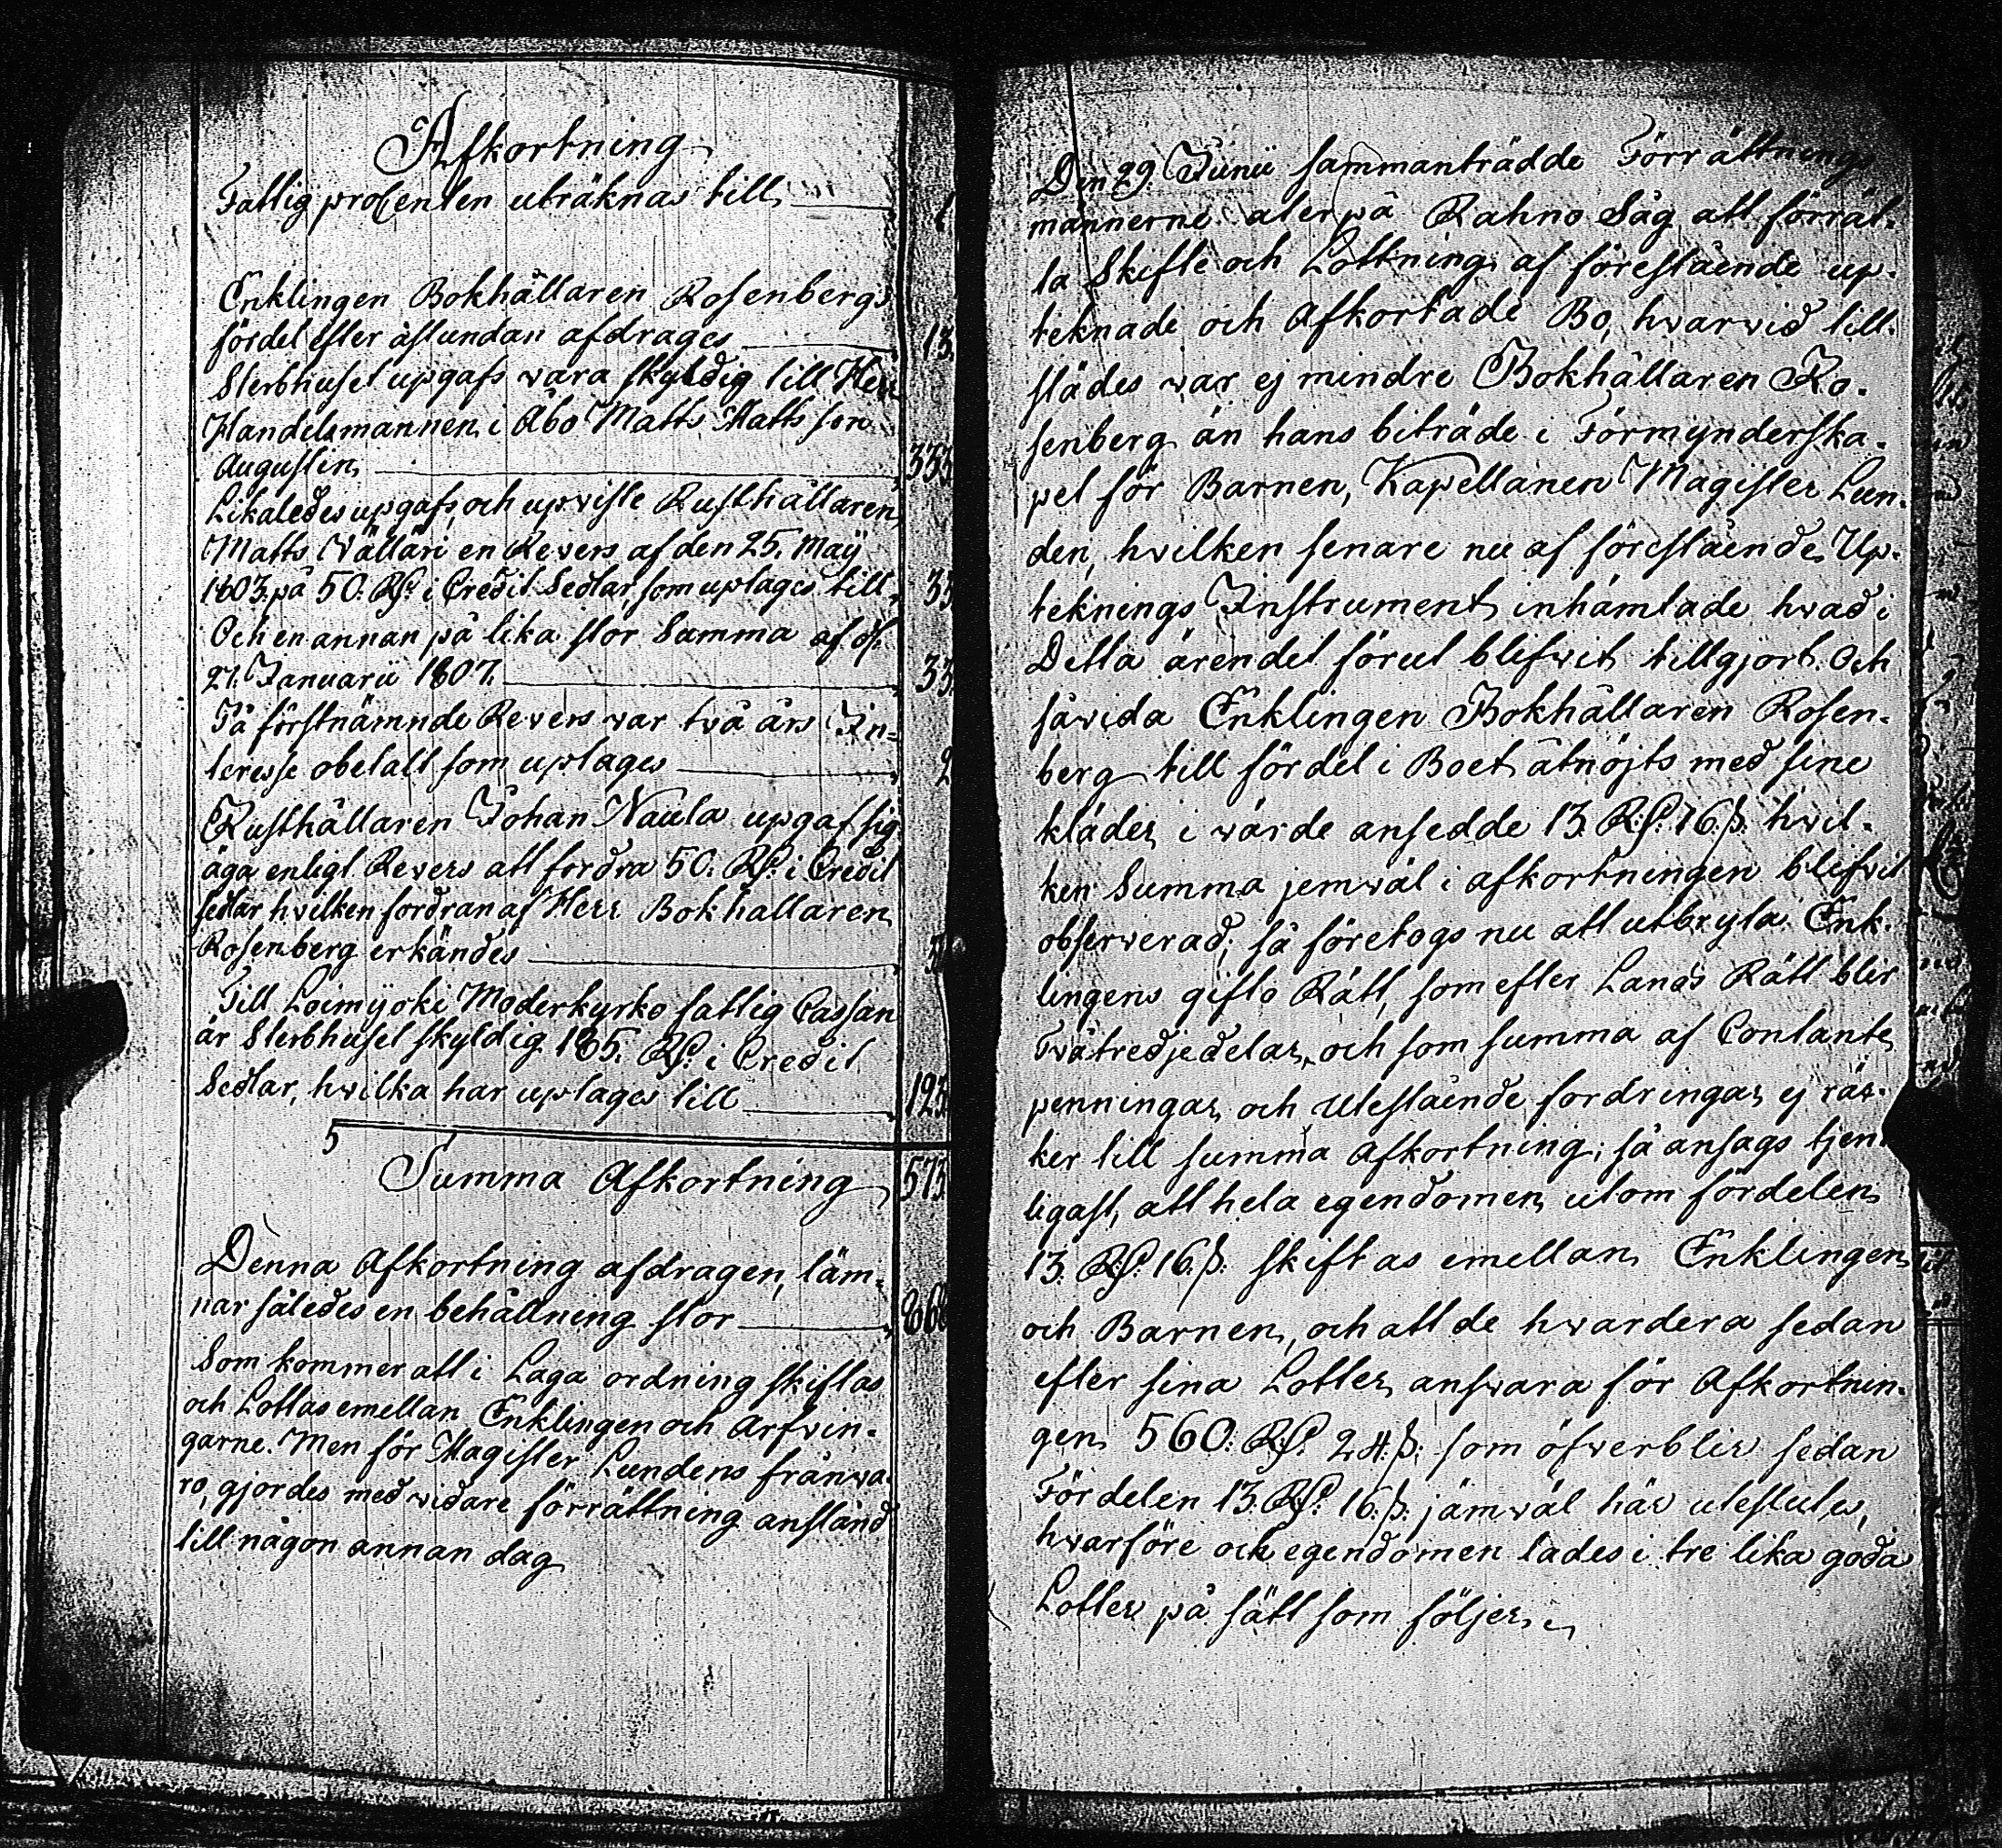 Afkortning
Fattig procenten uträknas till
Enklingen Bokhållaren Rosenbergs
fördel efter åstundan afdrages 13.
Sterbhuset upgafs vara skyldig till Herr
Handelsmannen i Åbo Matts Mattsson
Augustin 333
Likaledes upgafs, och upviste Rusthållaren
Matts Välläri en Revers af den 25. Maÿ
1803. på 50. RS. i Credit Sedlar, som uptages till 33
Och en annan på lika stor Summa af d.
21. Januarii 1807. 33.
På förstnämnde Revers var två års In-
teresse obetalt som uptages 2
Rusthållaren Johan Naula upgaf sig
äga enligt Revers att fordra 50. RS. i Credit
sedlar hvilken fordran af Herr Bokhållaren
Rosenberg erkändes 3
Till Loimijoki Moderkyrko fattig Cassan
är Sterbhuset skyldig 185. RS. i Credit
Sedlar, hvilka har uptages till 123
5
Summa Afkortning 573
Denna Afkortning afdragen, läm-
nar således en behållning stor 868
Som kommer att i Laga ordning skiftas
och Lottas emellan Enklingen och Arfvin-
garne. Men för Magister Lundens frånva-
ro, gjordes med vidare förrättning anstånd
till någon annan dag
Den 29. Junii sammanträdde Förrättnings
männerne åter på Rahno Såg att förrät-
ta Skifte och Lottning af förestående up-
teknade och Afkortade Bo, hvarvid till-
städes var ej mindre Bokhållaren Ro-
senberg än hans biträde i Förmynderska-
pet för Barnen, Kapellanen Magister Lun-
den, hvilken senare nu af förestående Up-
teknings Instrument inhämtade hvad i
Detta ärendet förut blifvit tillgjort. Och
såvida Enklingen Bokhållaren Rosen-
berg till fördel i Boet åtnöjts med sine
kläder i värde ansedde 13. RS. 16. ß. hvil-
ken Summa jemväl i afkortningen blifvit
observerad; så företogs nu att utbryta Enk-
lingens gifto Rätt, som efter Lands Rätt blir
Tvåtredjedelar, och som summa af Contante
penningar och Utestående fordringar ej räc-
ker till summa Afkortning; så ansags tjen-
ligast, att hela egendomen utom fördelen
13. RS. 16. ß. skiftas emellan Enklingen
och Barnen, och att de hvardera sedan
efter sina Lotter ansvara för Afkortnin-
gen 560. RS. 24. ß. som öfverblir sedan
Fördelen 13. RS. 16. ß. jämväl här uteslutes,
hvarföre och egendomen lades i tre lika goda
Lotter på sätt som följer